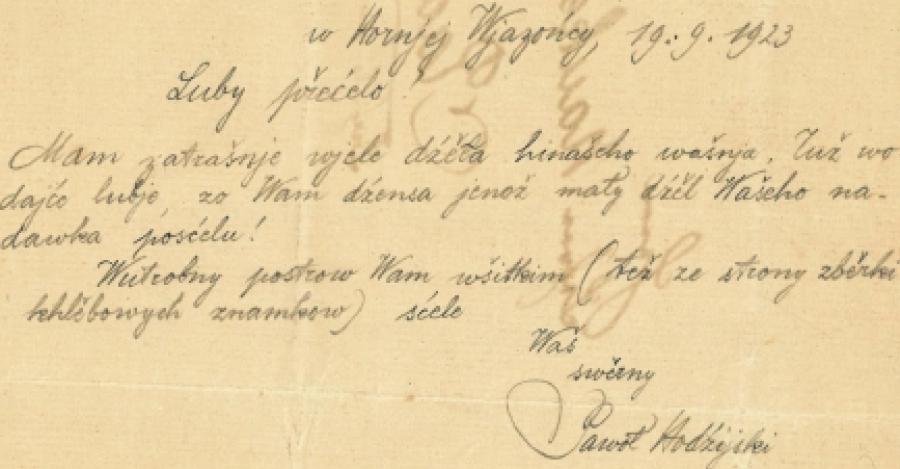 w Hornjej Wjazońcy, 19. 9. 1923
Luby přećelo!
Mam zatrašnje wjele dźěła hinašeho wašnja. Tuž wo
dajće lubje, zo Wam dźensa jenož mały dźěl Wašeho na-
dawka pósćelu!
Wutrobny postrow Wam wšitkim (tež ze strony zběrki
khlěbowych znamkow) sćele
Waš
swěrny
Pawoł Hodźijski